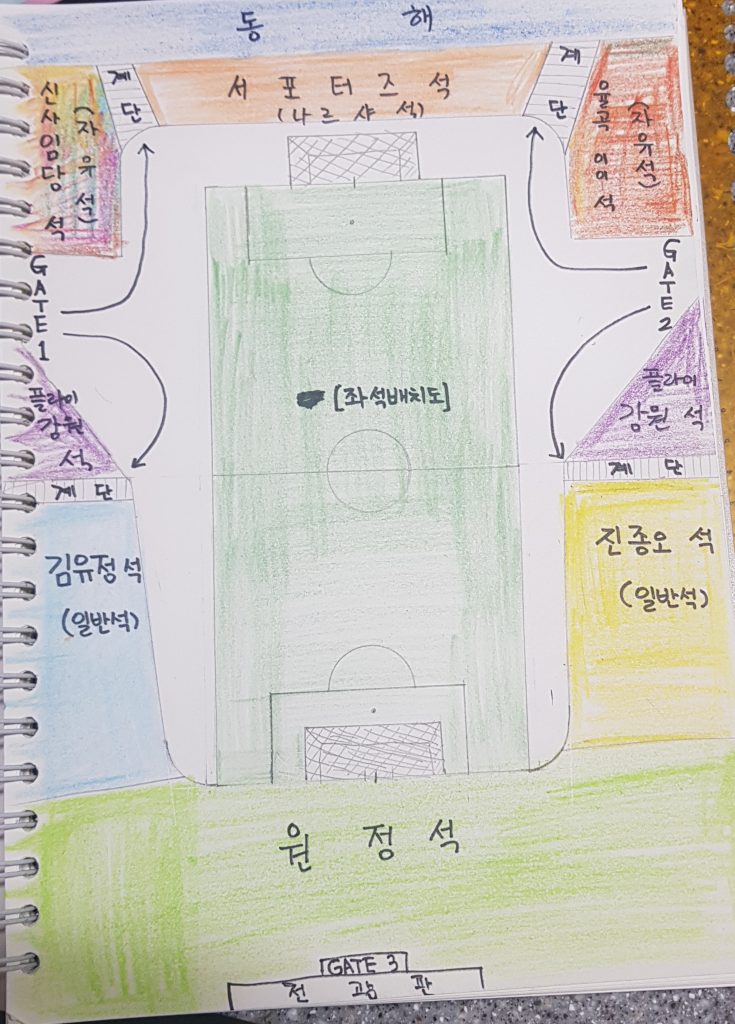 동해
계단
서포터즈석
(나르샤석)
계단
신사임당석
(자유석)
율곡이이석
(자유석)
GATE 1
GATE 2
[좌석배치도]
플라이
강원
석
플라이
강원석
계단
계단
김유정석
(일반석)
진종오석
(일반석)
원정석
GATE 3
전광판